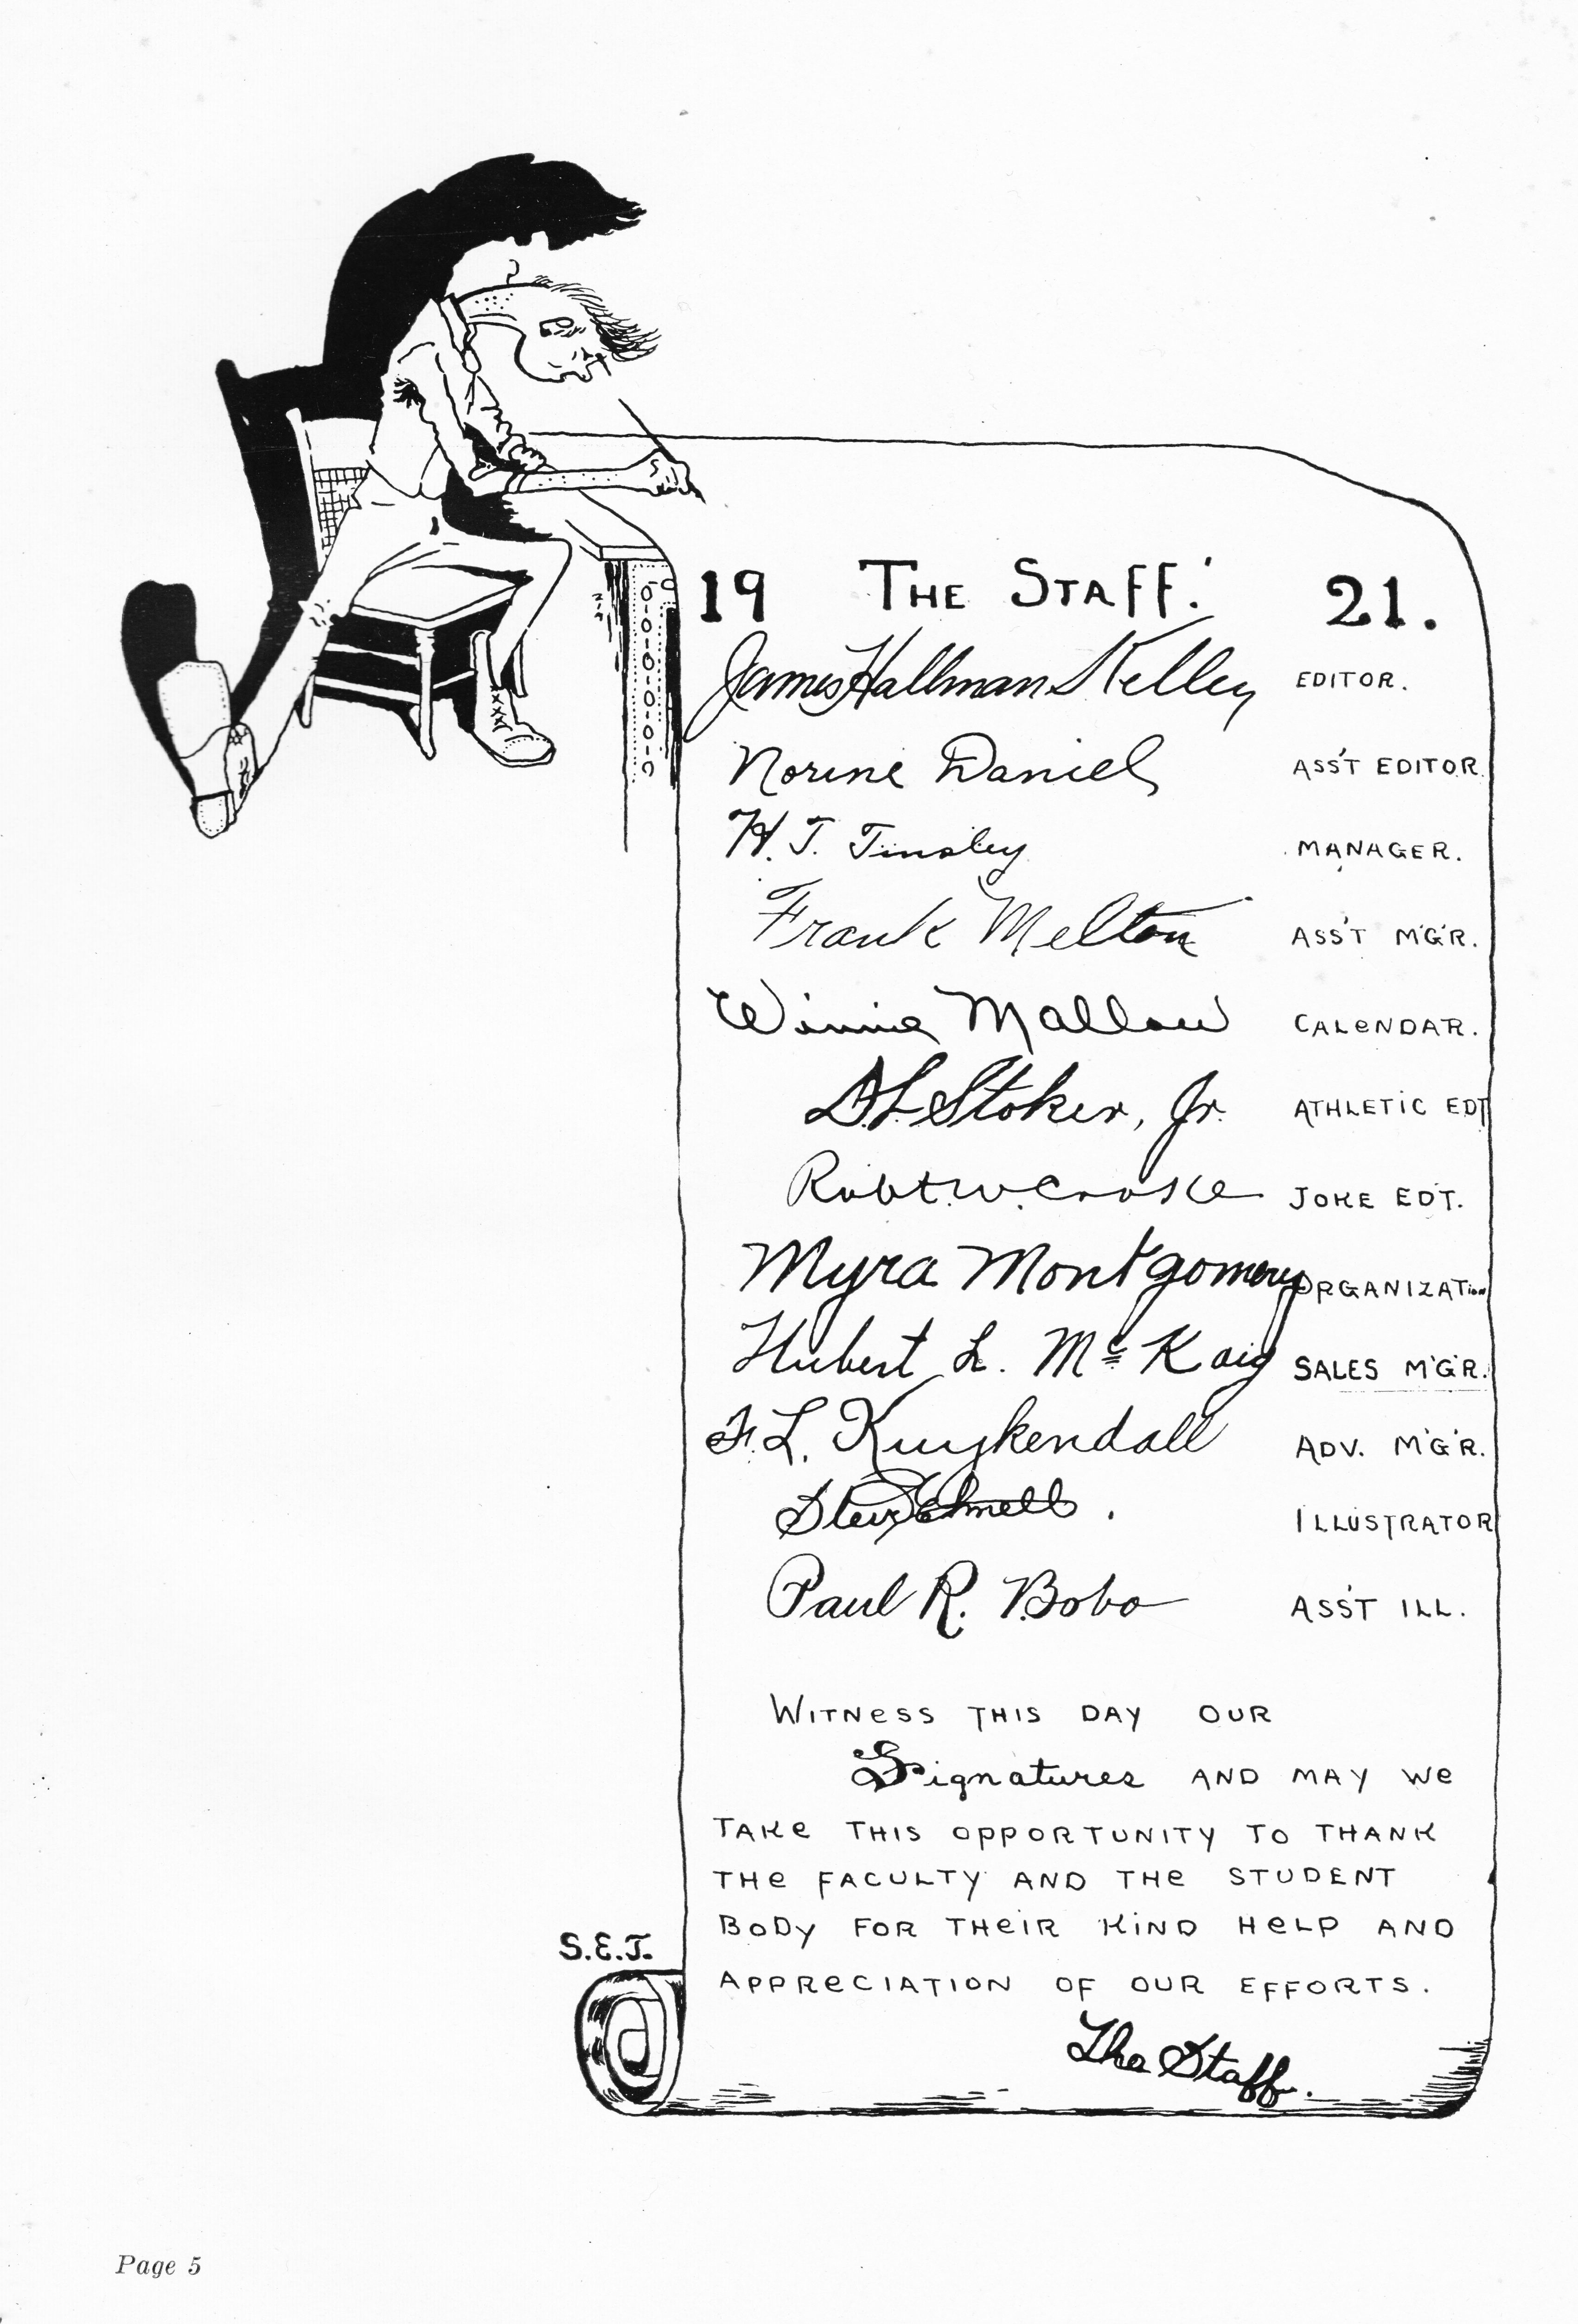 19 THE STAFF. 21.
James Hallman Kelley EDITOR.
Norine Daniel ASS'T EDITOR
H. T. Tinsley MANAGER.
Frank Melton ASS'T M'G'R.
Winnie Mallow CALENDAR.
Stoker, Jr. ATHLETIC EDT
Robt. W. Crooke JOKE EDT.
Myra Montgomery ORGANIZATION
Hubert L. McKaig SALES M'G'R.
F. L. Kuykendall ADV. M'G'R.
ILLUSTRATOR
Paul R. Bobo ASS'T ILL.
WITNESS THIS DAY OUR
Signatures AND MAY WE
TAKE THIS OPPORTUNITY TO THANK
THE FACULTY AND THE STUDENT
BODY FOR THEIR KIND HELP AND
S.E.J.
APPRECIATION OF OUR EFFORTS.
The Staff.
Page 5